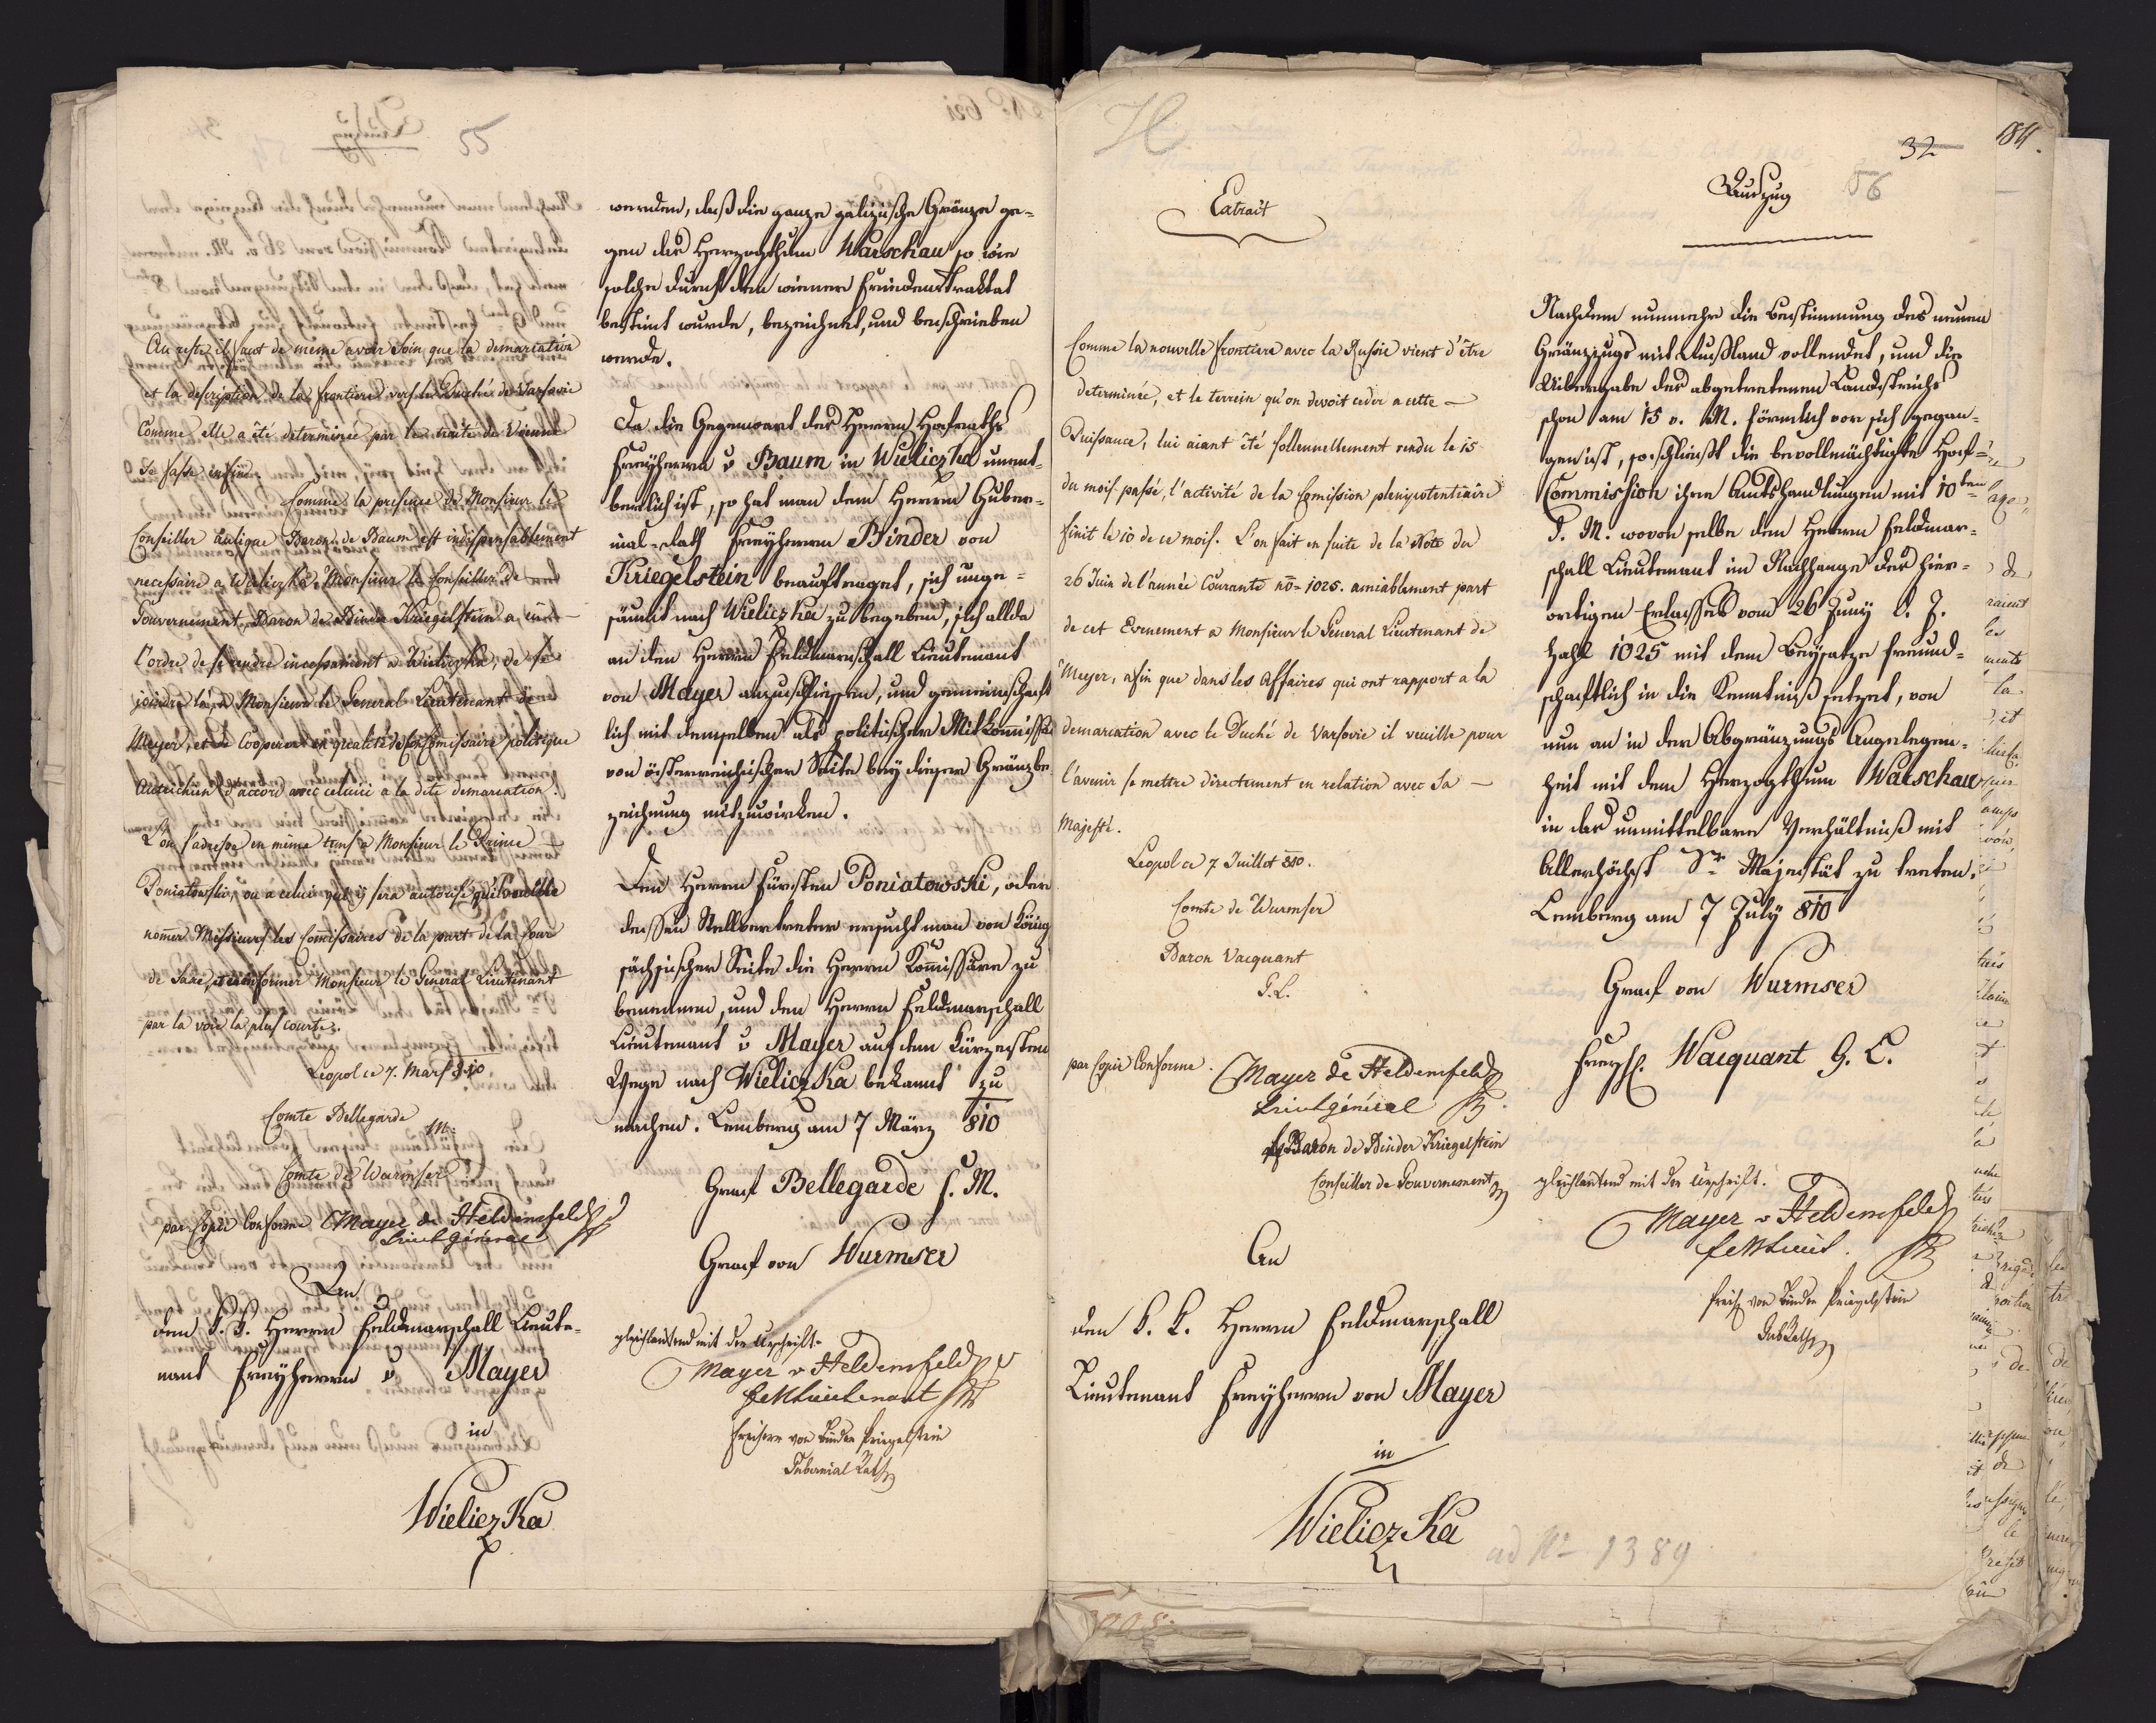 55
Au reste il faut de même avoir soin que la demarcation
et la description de la frontiere vers le Duché de Varsovie
Comme elle a été determinée par le traité de Vienne
se fasse
Comme la presence de Monsieur le
Conseiller Aulique Baron de Baum est indispensablement
necessaire a Wieliczka, Monsieur le Conseiller de
Gouvernement, Baron de Binder Kriegelstein a eû
l'ordre de se rendre incessament a Wieliczka, de se
joindre là, a Monsieur le General Lieutenant de
Meyer, et de Cooperer en qualité de Comissaire politique
Autrichien d'accord avec celuici a la dite demarcation.
L'on s'adresse en même tems a Monsieur le Prince
Poniatowski, ou a celui qui y sera autorisé qu'il veuille
nomer Messieurs les Comissaires de la part de la Cour
de Saxe, et en informer Monsieur le General Lieutenant
par la voie la plus courte.
Leopol ce 7. Mars 810
Comte Bellegarde
M:
Comte de Wurmser
par Copie Conforme Mayer de Heldensfeld
Lieut général
An
den K. K. Herrn Feldmarschall Lieute=
nant Freyherrn v Mayer
in
Wieliczka
werden, daß die ganze galizische Gränze ge=
gen das Herzogthum Warschau so wie
solche durch den wiener Friedenstraktat
bestimt wurde, bezeichnet, und beschrieben
werde.
Da die Gegenwart des Herrn Hofraths
Freyherrn v Baum in Wieliczka unent=
berlich ist, so hat man dem Herrn Guber=
nial-Rath Freyherrn Binder von
Kriegelstein beauftraget, sich unge=
säumt nach Wieliczka zu begeben, sich allda
an den Herrn Feldmarschall Lieutenant
von Mayer anzuschliessen, und gemeinschaft
lich mit demselben als politischer Mitkommissär
von österreichischer Seite bey dieser Gränzbe
zeichnung mitzuwirken.
Den Herrn Fürsten Poniatowski, oder
dessen Stellvertreter ersucht man von König
sächsischer Seite die Herrn Kommissäre zu
benennen, und den Herrn Feldmarschall
Lieutenant v Mayer auf dem kürzesten
Wege nach Wieliczka bekannt zu
machen. Lemberg am 7 März 810
Graf Bellegarde f. M.
Graf von Wurmser
gleichlautend mit der Urschrift.
Mayer v Heldensfeld
FeldMLieutenant
Freiherr von Binder Kriegelstein
Gubernial Rath
Extrait
Comme la nouvelle frontiere avec la Russie vient d'être
determinée, et le terrein qu'on devoit ceder a cette —
Puissance, lui aiant êté sollennellement rendu le 15
du mois passé, l'activité de la Comission plenipotentiaire
finit le 10 de ce mois. L'on fait en suite de la Note du
26 Juin de l'année Courante no 1025. amiablement part
de cet Evenement a Monsieur le General Lieutenant de
Meyer, afin que dans les Affaires qui ont rapport a la
demarcation avec le Duché de Varsovie il veuille pour
l'avenir se mettre directement en relation avec Sa —
Majesté.
Leopol ce 7 Juillet 810.
Comte de Wurmser
Baron Vacquant
G. L.
par Copie Conforme. Mayer de Heldensfeld
Lieut général
Baron de Binder Kriegelstein
Conseiller de Gouvernement
An
den K. K. Herrn Feldmarschall
Lieutenant Freyherrn von Mayer
in
Wieliczka
ad No 1389
32
184.
Auszug
56
Nachdem nunmehr die Bestimmung des neuen
Gränzzugs mit Rußland vollendet, und die
Uibergabe des abgetretenen Landstrichs
schon am 15 v. M. förmlich vor sich gegan=
gen ist, so schliesst die bevollmächtigte Hof=
Commission ihre Amtshandlungen mit 10ten
d. M. wovon selbe den Herrn Feldmar=
schall Lieutenant im Nachhange des hier=
ortigen Erlasses vom 26 Juny d. J.
Zahl 1025 mit dem Beysatze freund=
schaftlich in die Kenntniß setzet, von
nun an in den Abgränzungs Angelegen=
heit mit dem Herzogthum Warschau
in das unmittelbare Verhältniß mit
Allerhöchst Sr Majestät zu treten.
Lemberg am 7 July 810
Graf von Wurmser
Freyh. Wacquant G. L.
gleichlautend mit der Urschrift.
Mayer v Heldensfeld
FeldMLieut.
Freih von Binder Kriegelstein
GubRath